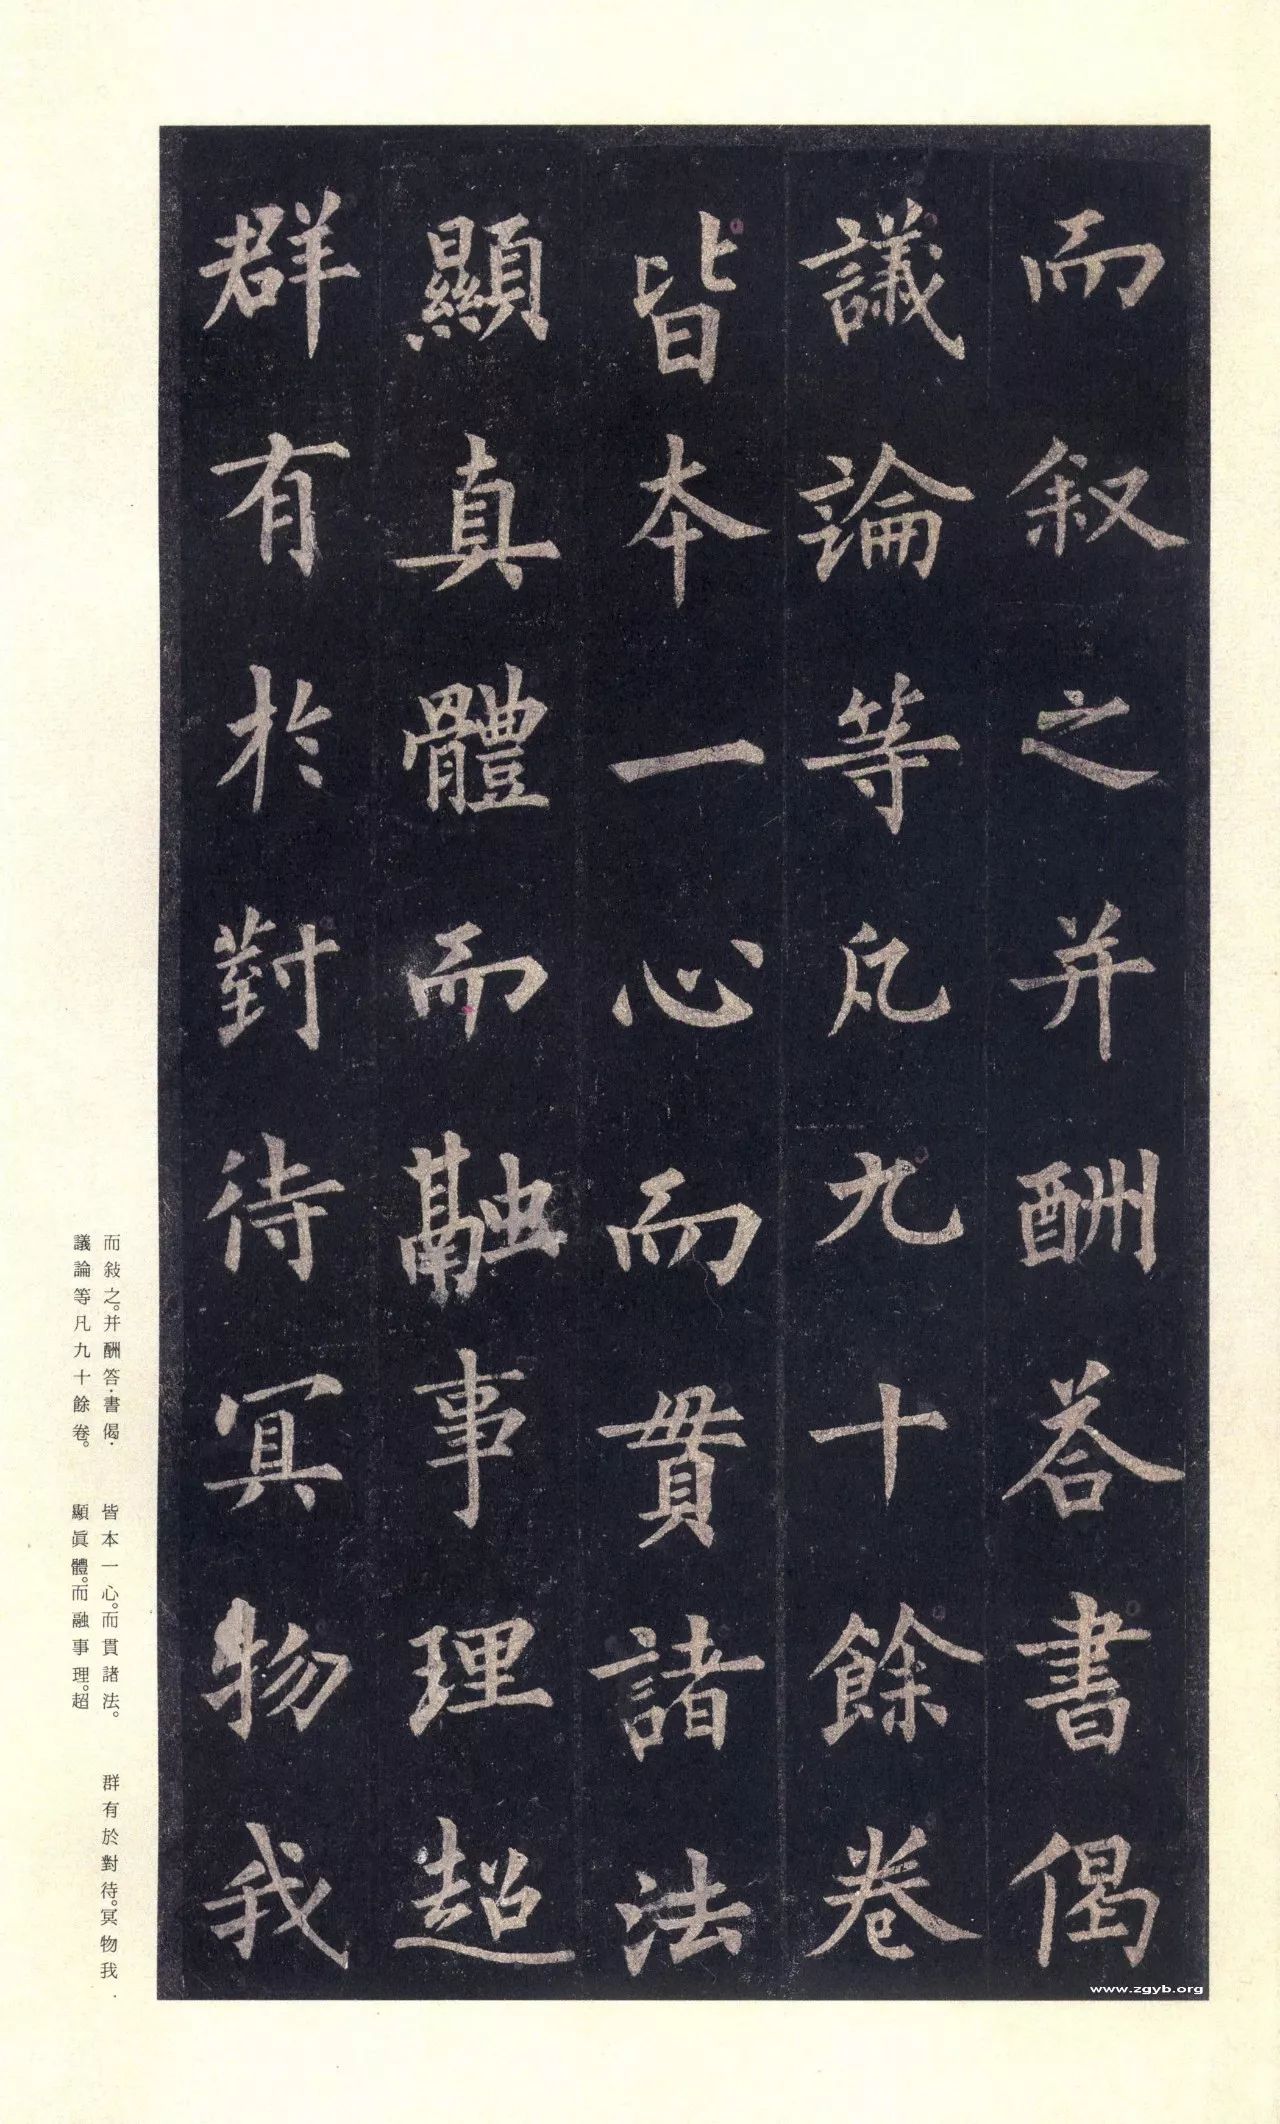 而叙之并酬荅書偈
議論等凡九十餘卷
皆本一心而貫諸法
顯真體而融事理超
群有於對待冥物我
而敍之。并酬答·書偈·
議論等凡九十餘卷。
皆本一心。而貫諸法。
顯眞體。而融事理。超
群有於對待。冥物我·
www.zgyb.org